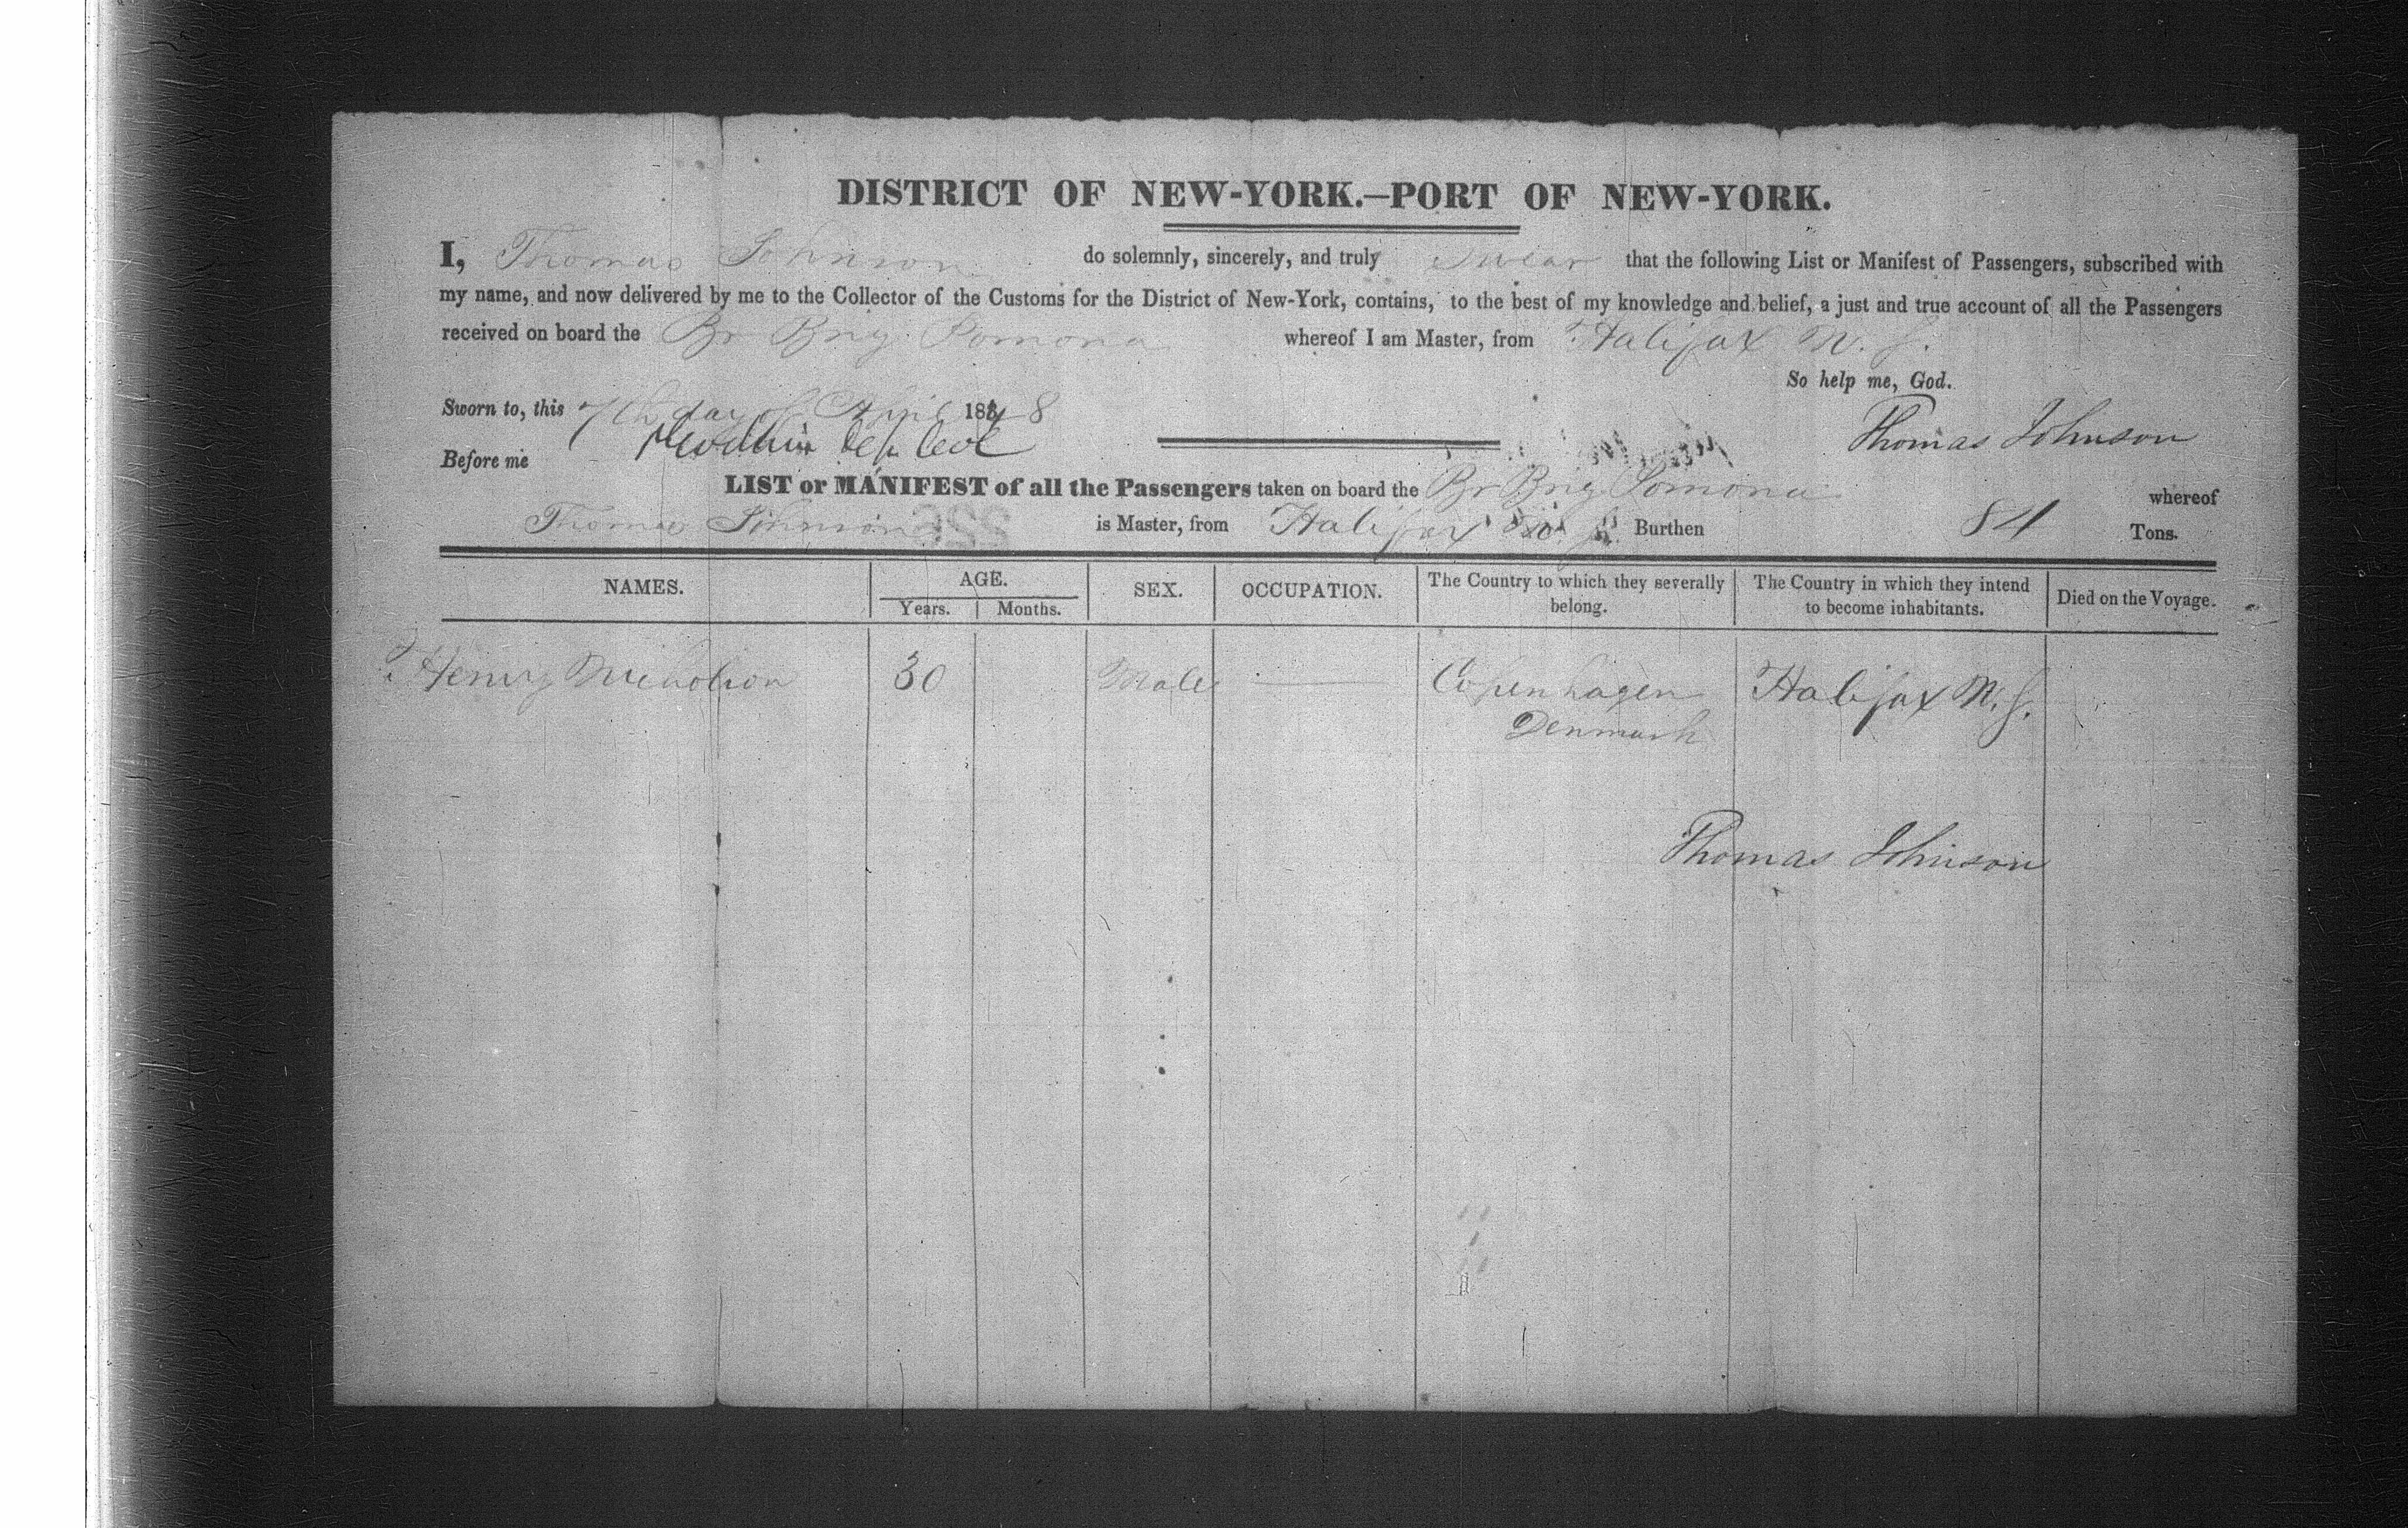 DISTRICT OF NEW-YORK.—PORT OF NEW-YORK.
I, Thomas Johnson do solemnly, sincerely, and truly swear that the following List or Manifest of Passengers, subscribed with
my name, and now delivered by me to the Collector of the Customs for the District of New-York, contains, to the best of my knowledge and belief, a just and true account of all the Passengers
received on board the Br Brig Pomona whereof I am Master, from Halifax N. S.
So help me, God.
Sworn to, this 7th day of April 1848
Thomas Johnson
Before me
LIST or MANIFEST of all the Passengers taken on board the Br Brig Pomona whereof
Thomas Johnson is Master, from Halifax N. S. Burthen 84 Tons.
NAMES. AGE. SEX. OCCUPATION. The Country to which they severally belong. The Country in which they intend to become inhabitants. Died on the Voyage.
Years. Months.
Henry Nicholson 30 Male — Copenhagen Halifax N. S.
Denmark
Thomas Johnson